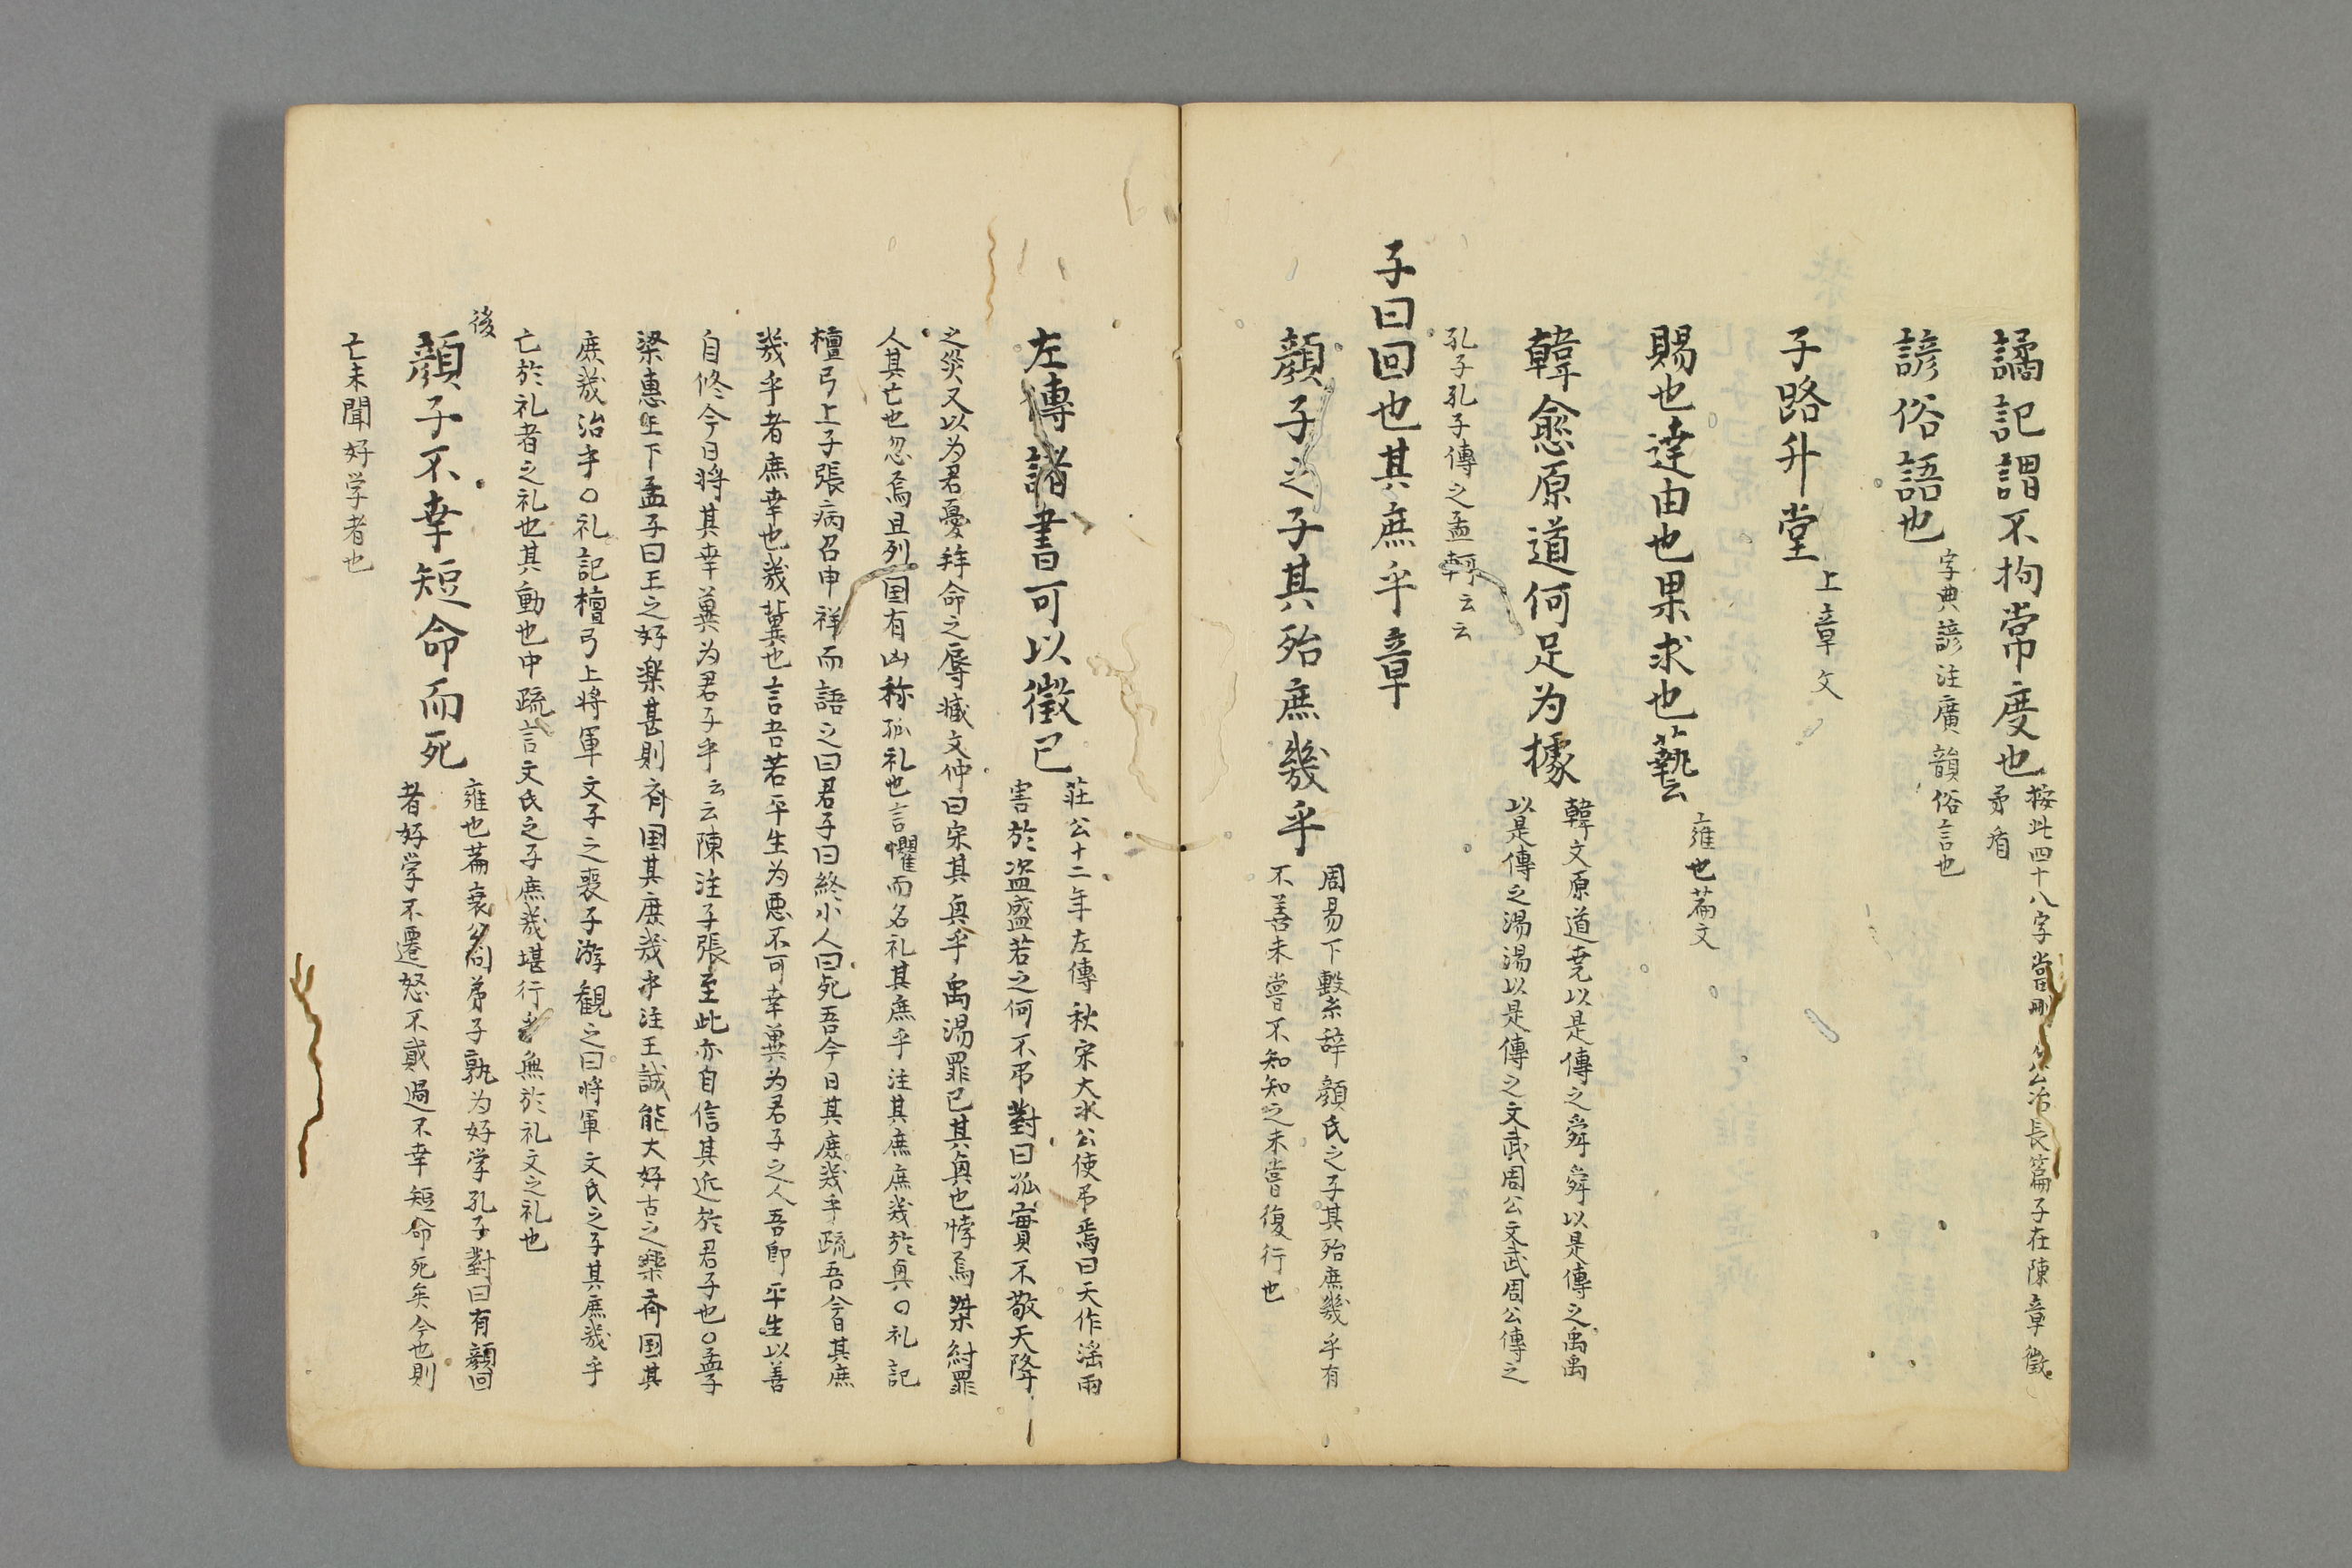 譎記謂不拘常度也
按此四十八字當刪公冶長篇子在陳章徵
矛盾
諺俗語也
字典諺注廣韻俗言也
子路升堂
上章文
賜也達由也果求也藝
雍也萹文
韓愈原道何足为據
韓文原道堯以是傳之舜舜以是傳之禹禹
以是傳之湯湯以是傳之文武周公文武周公傳之
孔子孔子傳之孟軻云云
子曰回也其庶乎章
顏子之子其殆庶幾乎
周易下繫辞顏氏之子其殆庶幾乎有
不善未嘗不知知之未嘗復行也
左傳諸書可以徵已
莊公十二年左傳秋宋大水公使吊焉曰天作淫雨
害於盗盛若之何不吊對曰孤實不敬天降
之災又以为君憂拜命之辱臧文仲曰宋其臾乎禹湯罪已其臾也悖焉桀紂罪
人其亡也忽焉且列国有凶称孤礼也言懼而名礼其庶乎注其庶庶幾於臾〇礼記
檀弓上子張病召申祥而語之曰君子曰終小人曰死吾今日其庶幾乎疏吾今日其庶
幾乎者庶幸也幾冀也言吾若平生为悪不可幸冀为君子之人吾即平生以善
自修今日将其幸冀为君子乎云云陳注子張至此亦自信其近於君子也〇孟子
梁惠王下孟子曰王之好楽甚則斉国其庶幾乎注王誠能大好古之樂斉国其
庶幾治乎〇礼記檀弓上将軍文子之喪子游観之曰将軍文氏之子其庶幾乎
亡於礼者之礼也其動也中疏言文氏之子庶幾堪行無於礼文之礼也
後
顏子不幸短命而死
雍也萹哀公问弟子孰为好学孔子對曰有顏回
者好学不遷怒不貳過不幸短命死矣今也則
亡未聞好学者也